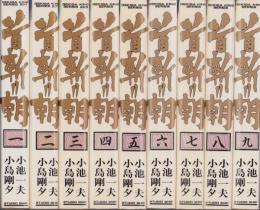 首斬り朝
一
小池一夫
小島剛夕
首斬り朝
二
小池一夫
小島剛夕
首斬り朝
三
小池一夫
小島剛夕
首斬り朝
四
小池一夫
小島剛夕
首斬り朝
五
小池一夫
小島剛夕
首斬り朝
六
小池一夫
小島剛夕
首斬り朝
七
小池一夫
小島剛夕
首斬り朝
八
小池一夫
小島剛夕
首斬り朝
九
小池一夫
小島剛夕